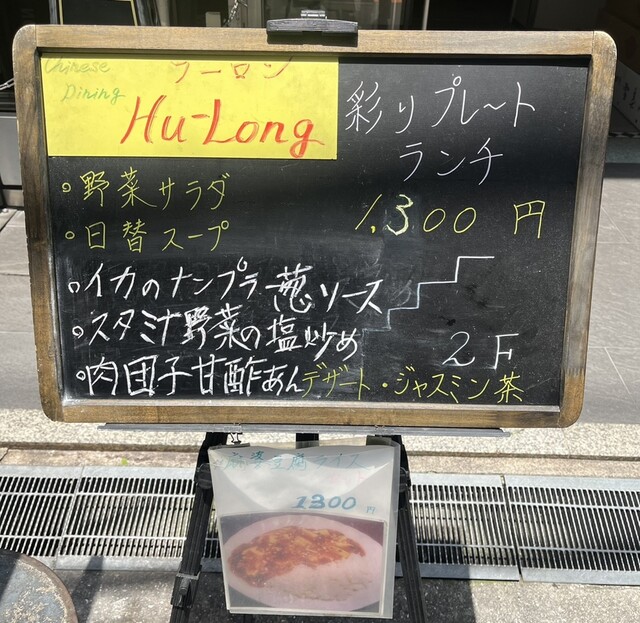 Chinese
Dining
フーロン
Hu-Long
彩りプレート
ランチ
1.300円
・野菜サラダ
・日替スープ
・イカのナンプラ葱ソース
・スタミナ野菜の塩炒め
・肉団子甘酢あん
デザート・ジャスミン茶
2F
麻婆豆腐ライス
1300円